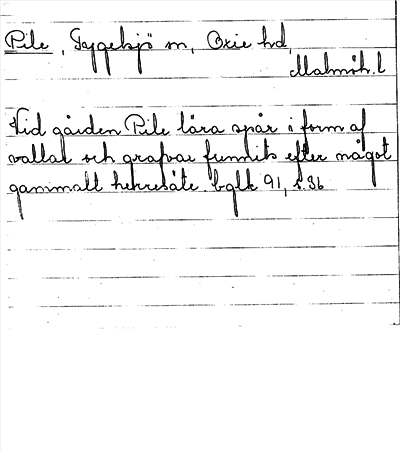 Pile, Tygelsjö sn, Oxie hd,
Malmöh. l
Vid gården Pile lära spår i form af
vallar och grafvar funnits efter något
gammalt herresäte. bglk 91, s. 36